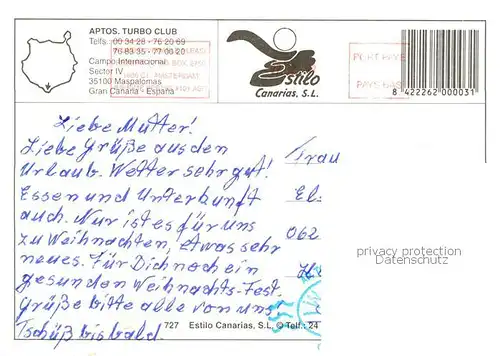 APTOS. TURBO CLUB
Telfs.: 00 34 28 - 76 20 69
76 83 35 - 77 08 20
Campo Internacional
Sector IV
35100 Maspalomas
Gran Canaria - España
Estilo
Canarias, S.L.
PORT PAYE
PAYS BAS
8 422262 000031
Liebe Mutter!
Liebe Grüße aus den
Urlaub. Wetter sehr gut!
Essen und Unterkunft
auch. Nur ist es für uns
zu Weihnachten, etwas sehr
neues. Für Dich noch ein
gesunden Weihnachts-Fest.
Grüße bitte alle von uns.
Tschüß bis bald.
Frau
El
062
H
privacy protection
Datenschutz
727 Estilo Canarias, S.L. © Telf.: 24